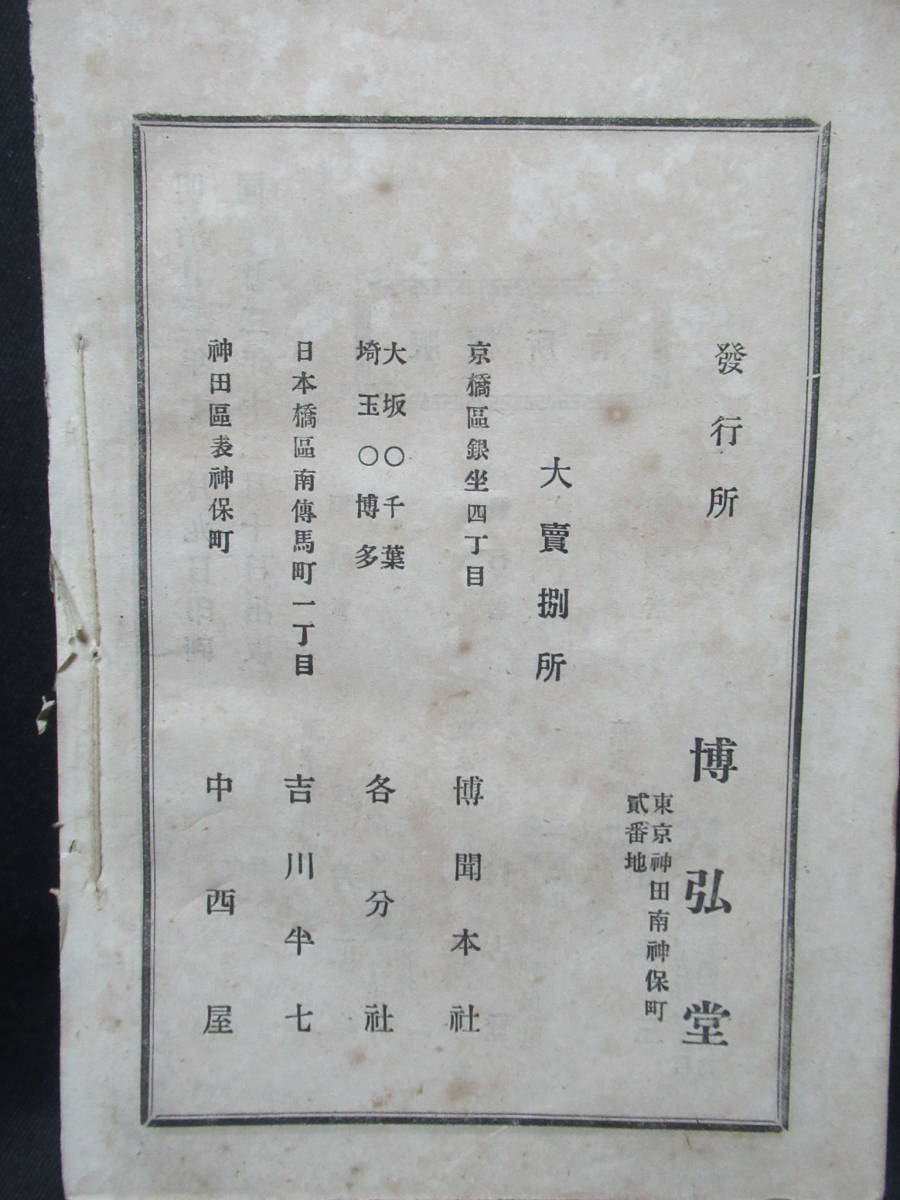 發行所 博弘堂
東京神田南神保町
貳番地
大賣捌所
京橋區銀坐四丁目 博聞本社
大坂〇千葉
埼玉〇博多 各分社
日本橋區南傳馬町一丁目 吉川半七
神田區表神保町 中西屋